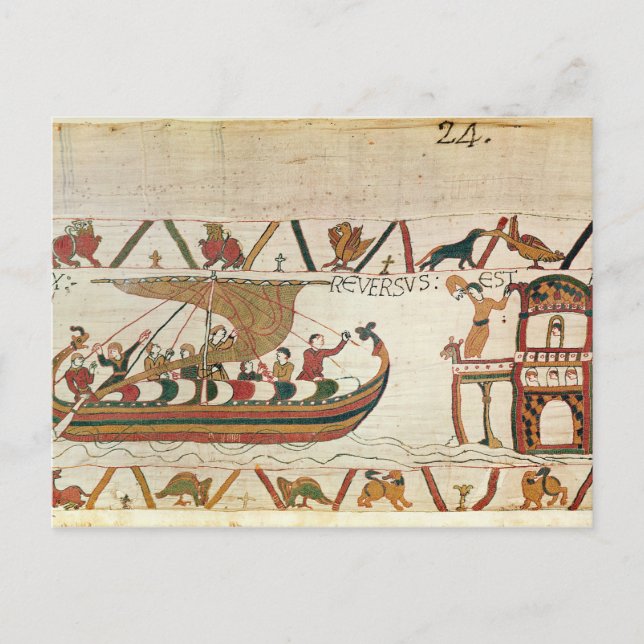 24.
: REVERSVS: EST